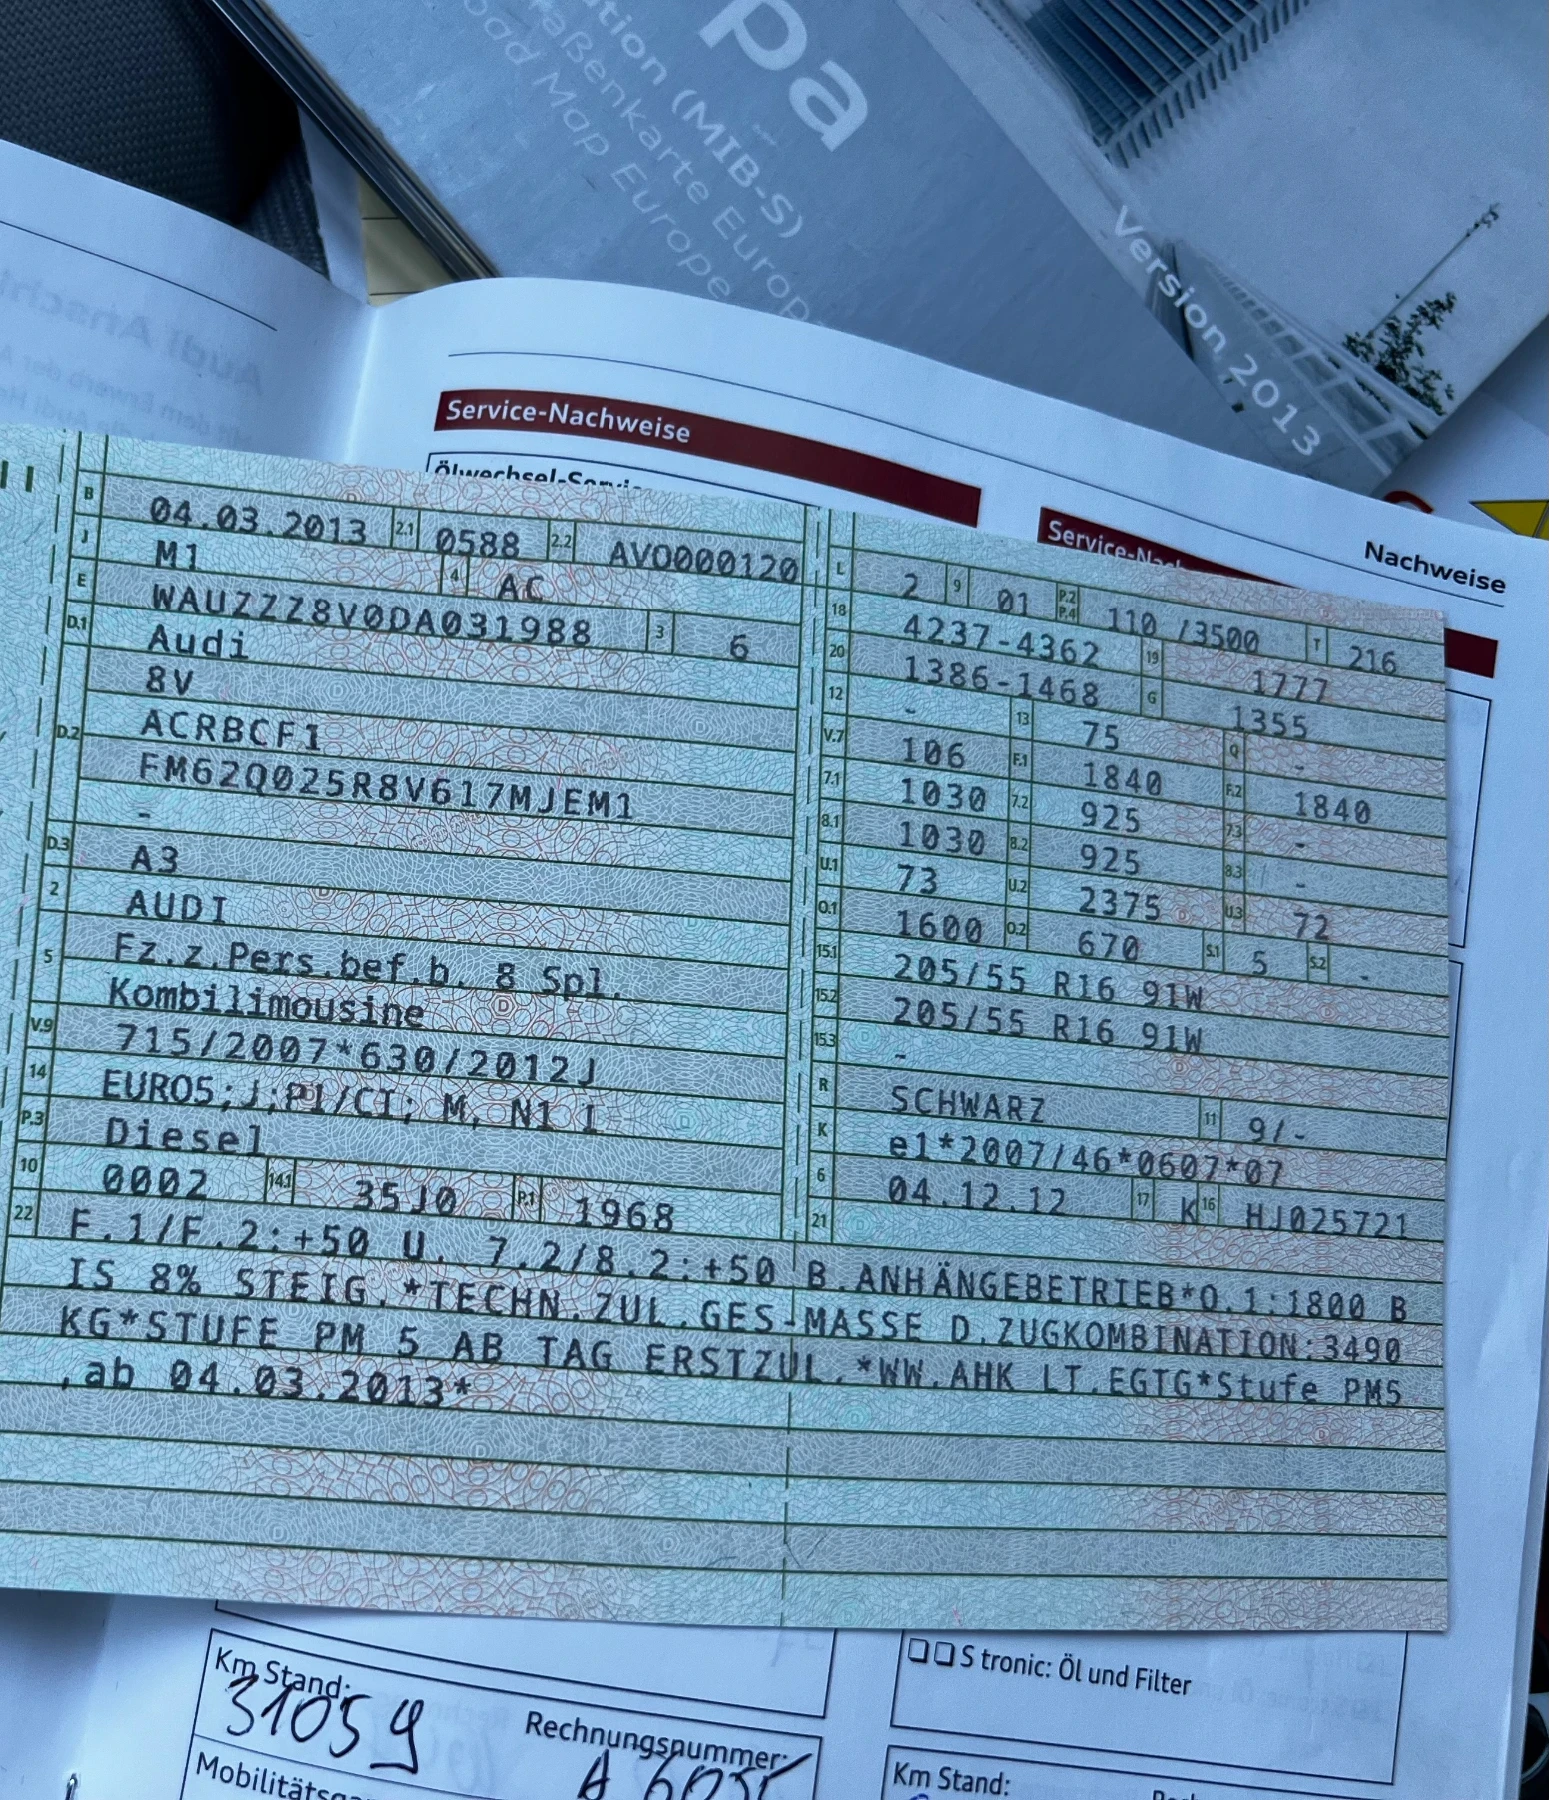 pa
(MIB-S)
Straßenkarte Europa
Road Map Europe
Version 2013
Service-Nachweise
Ölwechsel-Service
Nachweise
B 04.03.2013 2.1 0588 2.2 AVO000120
J M1 4 AC
E WAUZZZ8V0DA031988 3 6
D.1 Audi
8V
D.2 ACRBCF1
FM62Q025R8V617MJEM1
-
D.3 A3
2 AUDI
5 Fz.z.Pers.bef.b. 8 Spl.
Kombilimousine
V.9 715/2007*630/2012J
14 EURO5;J;PI/CI; M, N1 I
P.3 Diesel
10 0002 14.1 35J0 P.1 1968
L 2 9 01 P.2 P.4 110 /3500 T 216
18 4237-4362 19 1777
20 1386-1468 G 1355
12 - 13 75 Q -
V.7 106 F.1 1840 F.2 1840
7.1 1030 7.2 925 7.3 -
8.1 1030 8.2 925 8.3 -
U.1 73 U.2 2375 U.3 72
O.1 1600 O.2 670 S.1 5 S.2 -
15.1 205/55 R16 91W
15.2 205/55 R16 91W
15.3 -
R SCHWARZ 11 9/-
K e1*2007/46*0607*07
6 04.12.12 17 K 16 HJ025721
21
22 F.1/F.2:+50 U. 7.2/8.2:+50 B.ANHÄNGEBETRIEB*O.1:1800 B
IS 8% STEIG.*TECHN.ZUL.GES-MASSE D.ZUGKOMBINATION:3490
KG*STUFE PM 5 AB TAG ERSTZUL.*WW.AHK LT.EGTG*Stufe PM5
,ab 04.03.2013*
S tronic: Öl und Filter
Km Stand:
31059
Rechnungsnummer:
Km Stand: